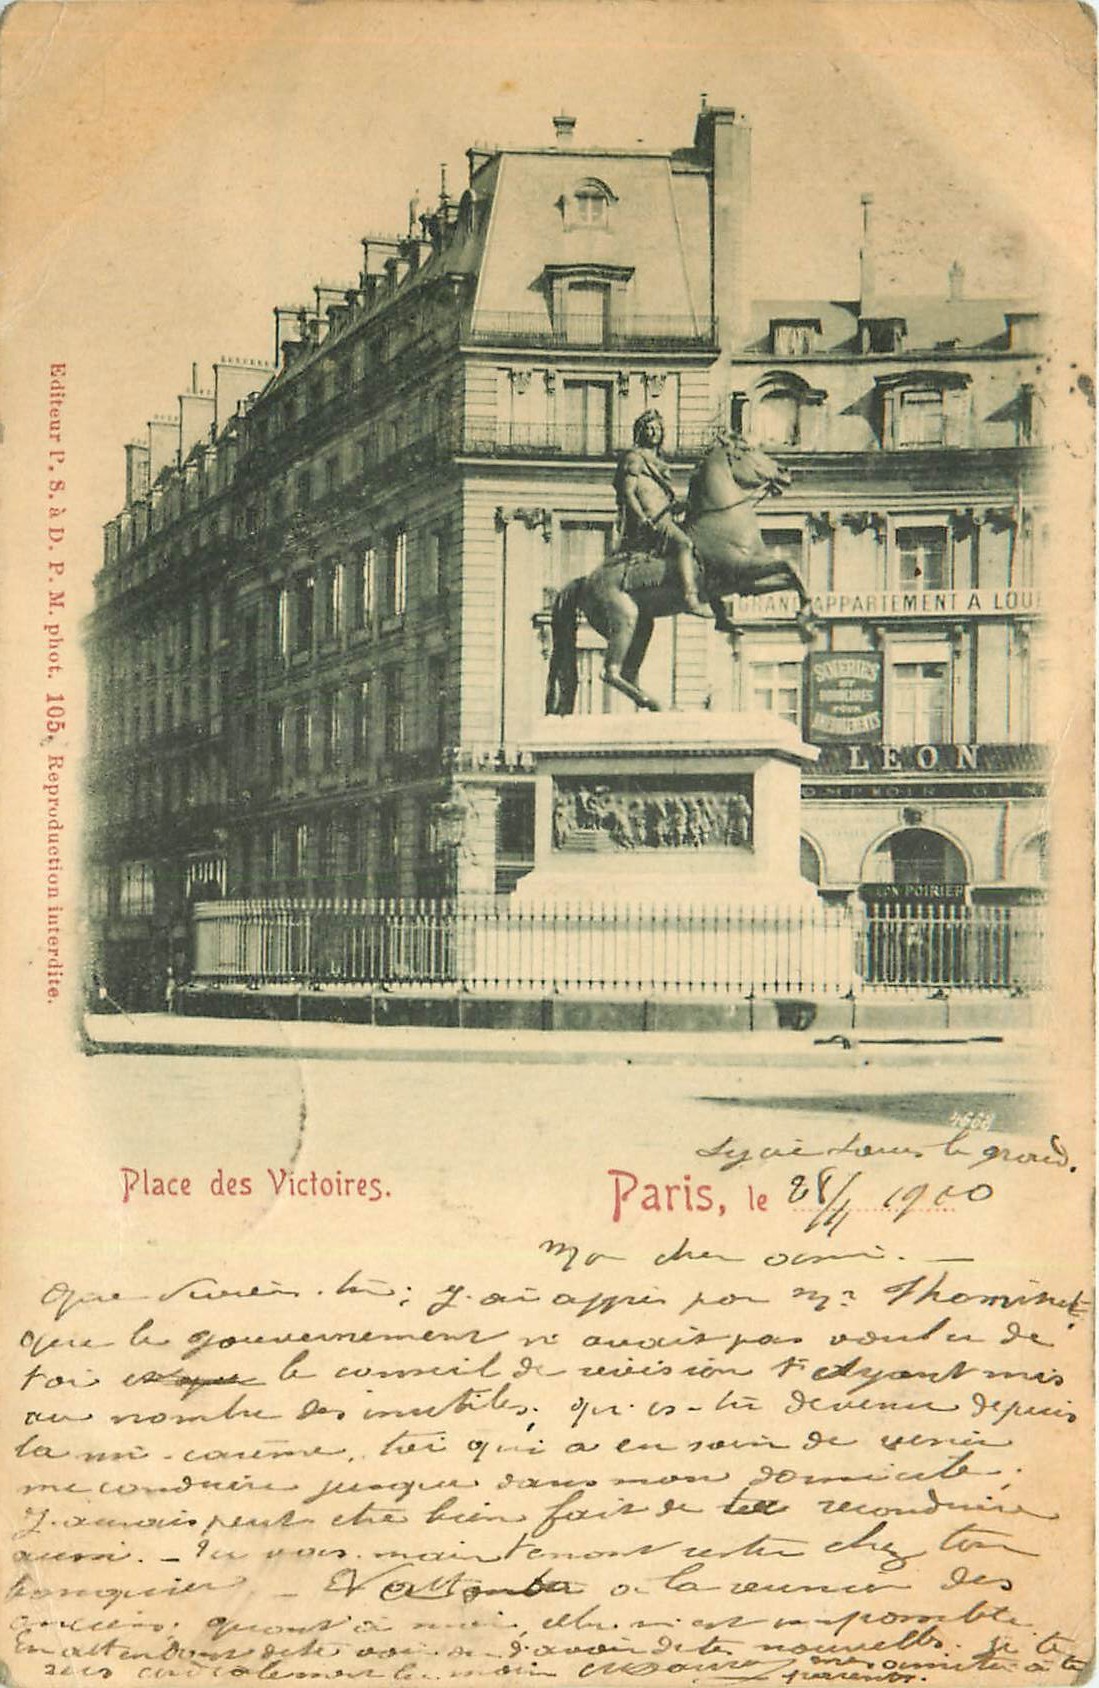 Editeur P. S. à D. P. M. phot. 105, Reproduction interdite.
GRAND APPARTEMENT A LOUE
SOIERIES
ET
POUR
LEON
COMPTOIR GEN
LEON POIRIER
4668
Lycée Louis le grand.
Place des Victoires.
Paris, le 28/4 1900
Mon cher ami. —
Que deviens-tu; J'ai appris par Mr Thominet
que le gouvernement n'avait pas voulu de
toi le conseil de révision t'ayant mis
au nombre des inutiles; qu'es-tu devenu depuis
la mi-carême, toi qui a eu soin de venir
me conduire jusque dans mon domicile;
J'aurais peut être bien fait de te reconduire
aussi. — Tu vas maintenant rester chez ton
banquier. — à la réunion des
anciens; quant à moi, elle m'est impossible
En attendant de te voir ou d'avoir de tes nouvelles. je te
serre cordialement la main mes amitiés à tes
parents.